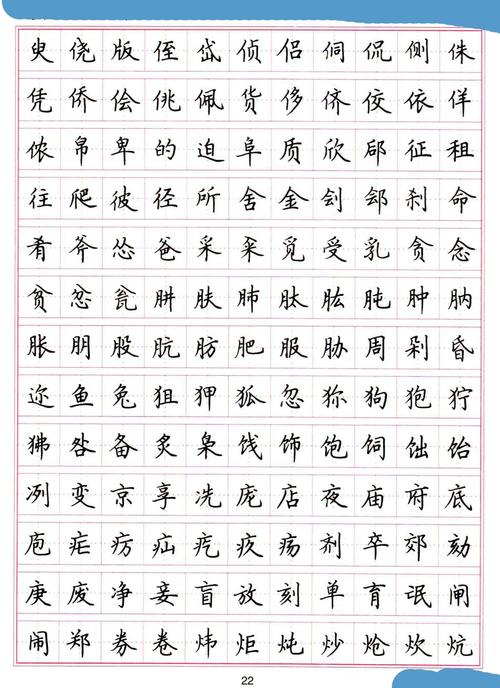 臾侥版侄岱侦侣侗侃侧侏
凭侨侩佻佩货侈侪佼依佯
侬帛卑的迫阜质欣郈征租
往爬彼径所舍金刽郐刹命
肴斧怂爸采采觅受乳贪念
贫忿瓮肼肤肺肽肱肫肿肭
胀朋股肮肪肥服胁周剁昏
迩鱼兔狙狎狐忽狝狗狍狞
狒咎备炙枭饯饰饱饲饳饴
冽变京享冼庞店夜庙府底
庖疟疠疝疙疚疡剂卒郊劾
庚废净妾盲放刻单育氓闸
闹郑券卷炜炬炖炒炝炊炕
22